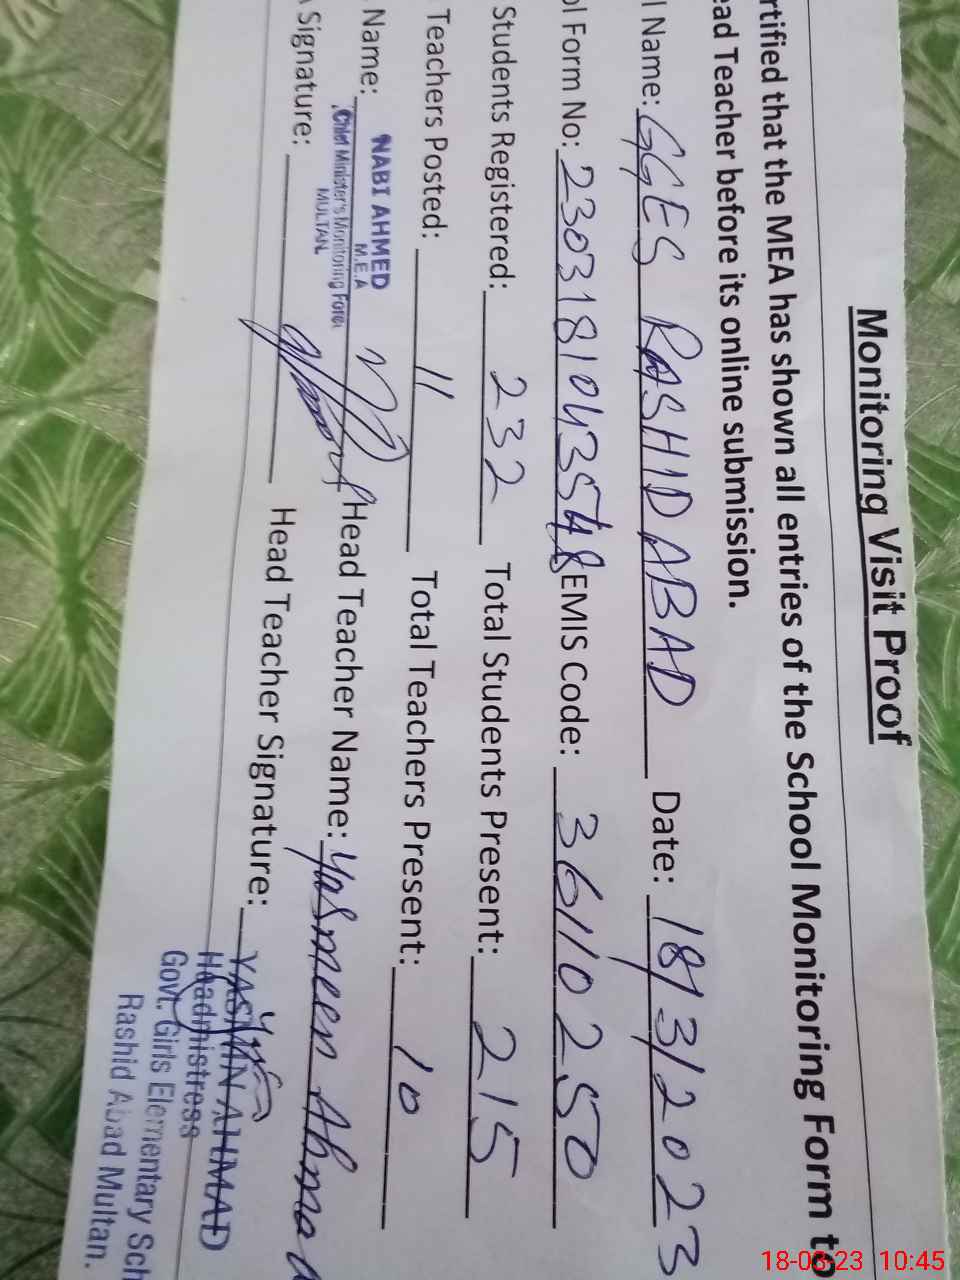 Monitoring Visit Proof
rtified that the MEA has shown all entries of the School Monitoring Form to
ead Teacher before its online submission.
l Name: GGES RASHIDABAD Date: 18/3/2023
ol Form No: 2303181043548 EMIS Code: 36110250
Students Registered: 232 Total Students Present: 215
Teachers Posted: 11 Total Teachers Present: 10
Name: Head Teacher Name: Yasmeen Ahmad
NABI AHMED
M.E.A
Chief Minister's Monitoring Force
MULTAN.
Signature: Head Teacher Signature:
YASMIN AHMAD
Headmistress
Govt. Girls Elementary Sch
Rashid Abad Multan.
18-03-23 10:45